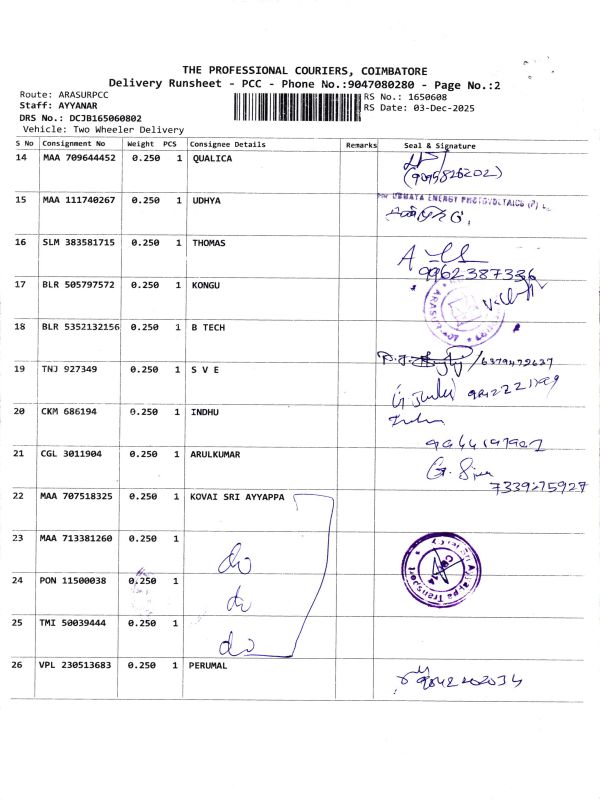 THE PROFESSIONAL COURIERS, COIMBATORE
Delivery Runsheet - PCC - Phone No.:9047080280 - Page No.:2
Route: ARASURPCC
RS No.: 1650608
Staff: AYYANAR
RS Date: 03-Dec-2025
DRS No.: DCJB165060802
Vehicle: Two Wheeler Delivery
S No Consignment No Weight PCS Consignee Details Remarks Seal & Signature
14 MAA 709644452 0.250 1 QUALICA
(9095826202)
15 MAA 111740267 0.250 1 UDHYA
ENERGY PHOTOVOLTAICS (P)
16 SLM 383581715 0.250 1 THOMAS
9962387336
17 BLR 505797572 0.250 1 KONGU
18 BLR 5352132156 0.250 1 B TECH
6379479637
19 TNJ 927349 0.250 1 S V E
20 CKM 686194 0.250 1 INDHU
21 CGL 3011904 0.250 1 ARULKUMAR
7339275927
22 MAA 707518325 0.250 1 KOVAI SRI AYYAPPA
23 MAA 713381260 0.250 1
do
24 PON 11500038 0.250 1
do
25 TMI 50039444 0.250 1
do
Kovai Sri Ayyappa Transport
26 VPL 230513683 0.250 1 PERUMAL